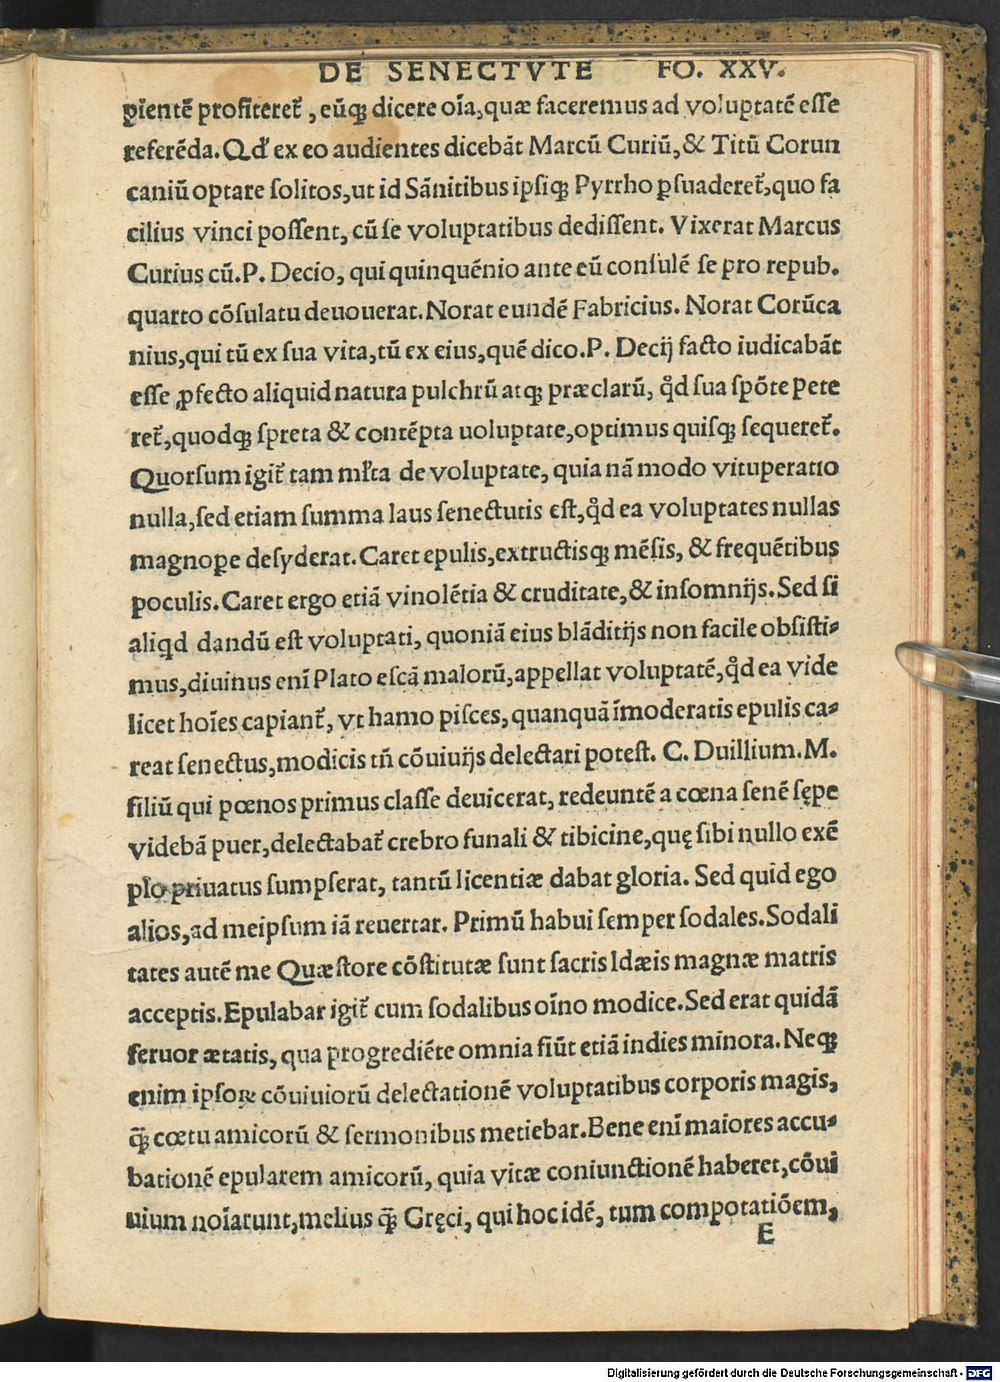 DE SENECTVTE FO. XXV.
piente̅ profiteret᷑, eu̅q; dicere oi̅a, quæ faceremus ad voluptate̅ eſſe
refere̅da. Qd̕ ex eo audientes diceba̅t Marcu̅ Curiu̅, & Titu̅ Corun
caniu̅ optare ſolitos, ut id Sa̅nitibus ipſiq; Pyrrho ꝑſuaderet᷑, quo fa
cilius vinci poſſent, cu̅ ſe voluptatibus dediſſent. Vixerat Marcus
Curius cu̅. P. Decio, qui quinque̅nio ante eu̅ conſule̅ ſe pro repub.
quarto co̅ſulatu deuouerat. Norat eunde̅ Fabricius. Norat Coru̅ca
nius, qui tu̅ ex ſua vita, tu̅ ex eius, que̅ dico. P. Decij facto iudicaba̅t
eſſe ꝓfecto aliquid natura pulchru̅ atq; præclaru̅, qd̕ ſua ſpo̅te pete
ret᷑, quodq; ſpreta & conte̅pta uoluptate, optimus quiſq; ſequeret᷑.
Quorſum igit᷑ tam mĺta de voluptate, quia na̅ modo vituperatio
nulla, ſed etiam ſumma laus ſenectutis eſt, qd̕ ea voluptates nullas
magnope deſyderat. Caret epulis, extructiſq; me̅ſis, & freque̅tibus
poculis. Caret ergo etia̅ vinole̅tia & cruditate, & inſomnijs. Sed ſi
aliqd dandu̅ eſt voluptati, quonia̅ eius bla̅ditijs non facile obſiſti⸗
mus, diuinus eni̅ Plato eſca̅ maloru̅, appellat voluptate̅, qd̕ ea vide
licet hoi̅es capiant᷑, vt hamo piſces, quanqua̅ i̅moderatis epulis ca⸗
reat ſenectus, modicis tn̅ co̅uiuijs delectari poteſt. C. Duillium. M.
filiu̅ qui pœnos primus claſſe deuicerat, redeunte̅ a cœna ſene̅ ſępe
videba̅ puer, delectabat᷑ crebro funali & tibicine, quę ſibi nullo exe̅
plo priuatus ſumpſerat, tantu̅ licentiæ dabat gloria. Sed quid ego
alios, ad meipſum ia̅ reuertar. Primu̅ habui ſemper ſodales. Sodali
tates aute̅ me Quæſtore co̅ſtitutæ ſunt ſacris Idæis magnæ matris
acceptis. Epulabar igit᷑ cum ſodalibus oi̅no modice. Sed erat quida̅
feruor ætatis, qua progredie̅te omnia fiu̅t etia̅ indies minora. Neq;
enim ipſoꝝ co̅uiuioru̅ delectatione̅ voluptatibus corporis magis,
q̅; cœtu amicoru̅ & ſermonibus metiebar. Bene eni̅ maiores accu⸗
batione̅ epularem amicoru̅, quia vitæ coniunctione̅ haberet, co̅ui
uium noi̅arunt, melius q̅; Gręci, qui hoc ide̅, tum compotatio̅em,
E
Digitalisierung gefördert durch die Deutsche Forschungsgemeinschaft - DFG